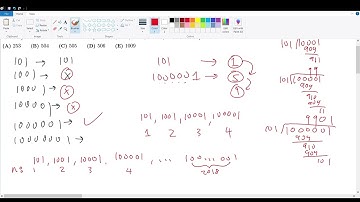 (A) 253 (B) 504 (C) 505 (D) 506 (E) 1009
101 → 101
1001 → x
10001 → x
100001 → x
1000001 →
10000001 →
101 → 1
1000001 → 5
9
101, 1001, 10001, 100001
1 2 3 4
101, 1001, 10001, 100001, ... 100...001
n=3 1 2 3 4 2018
101 10001
909
911
99
101 100001
909
910
909
11
9901
101 1000001
909
910
909
101